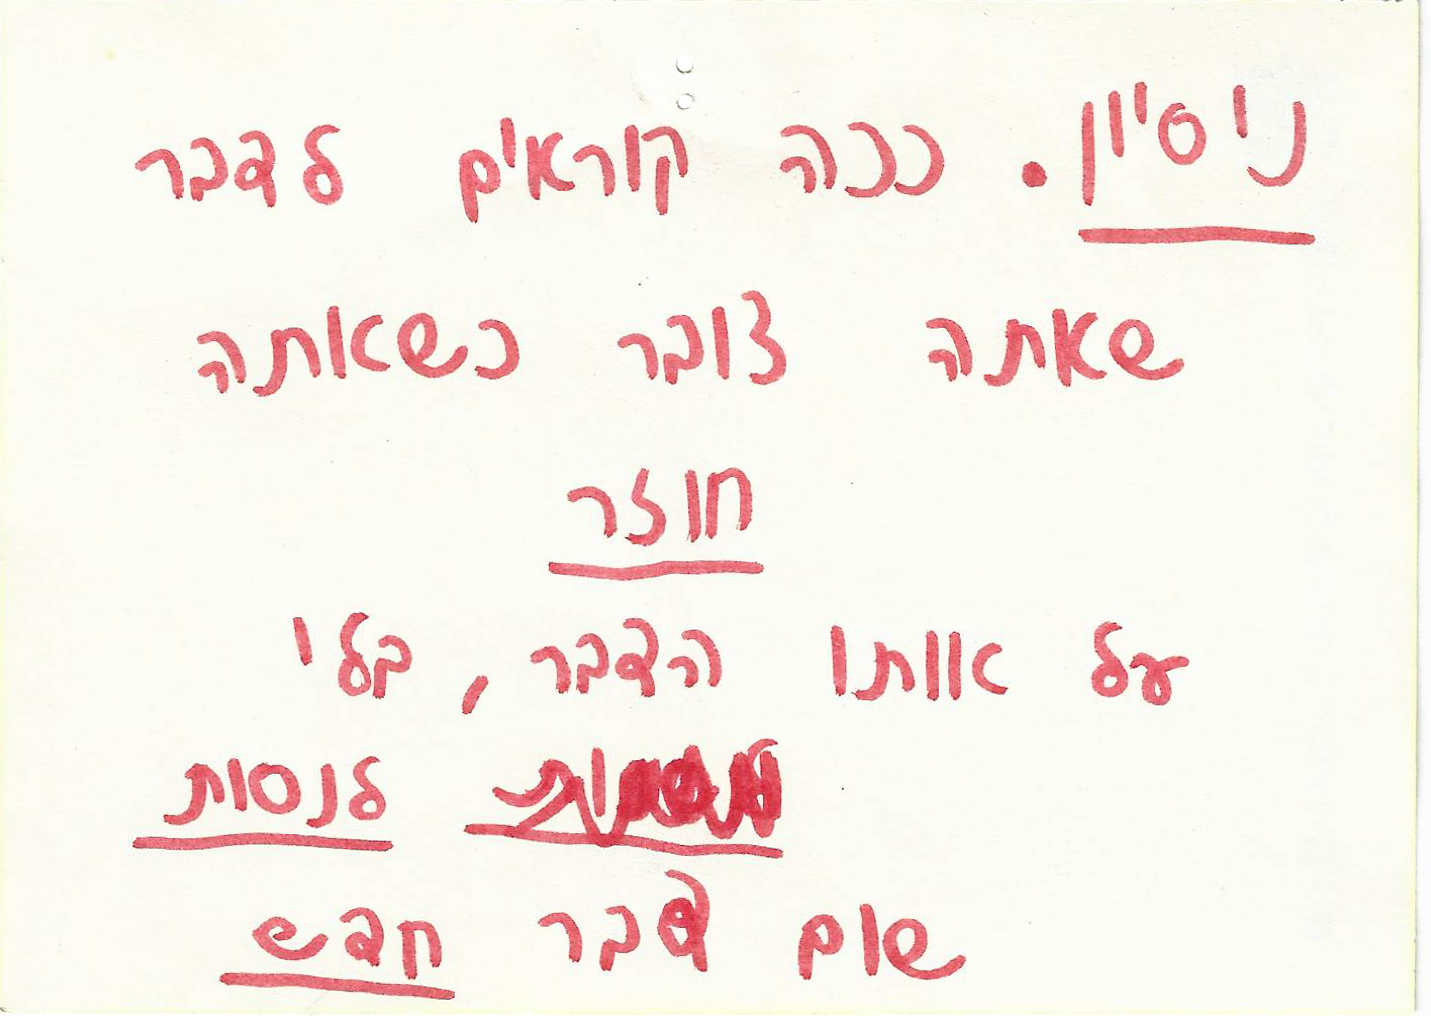 ניסיון. ככה קוראים לדבר
שאתה צובר כשאתה
חוזר
על אותו הדבר, בלי
לנסות
שום דבר חדש